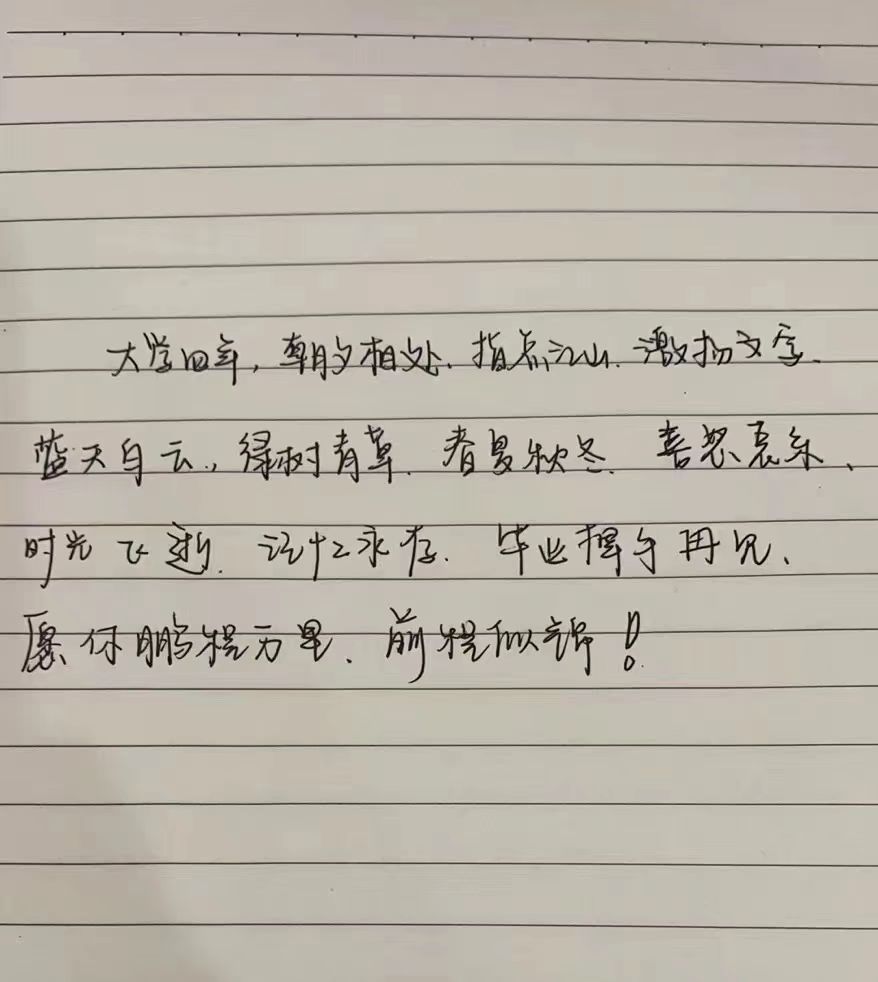 大学四年，朝夕相处、指点江山、激扬文字、
蓝天白云，绿树青草、春夏秋冬、喜怒哀乐、
时光飞逝、记忆永存、毕业挥手再见、
愿你鹏程万里、前程似锦！